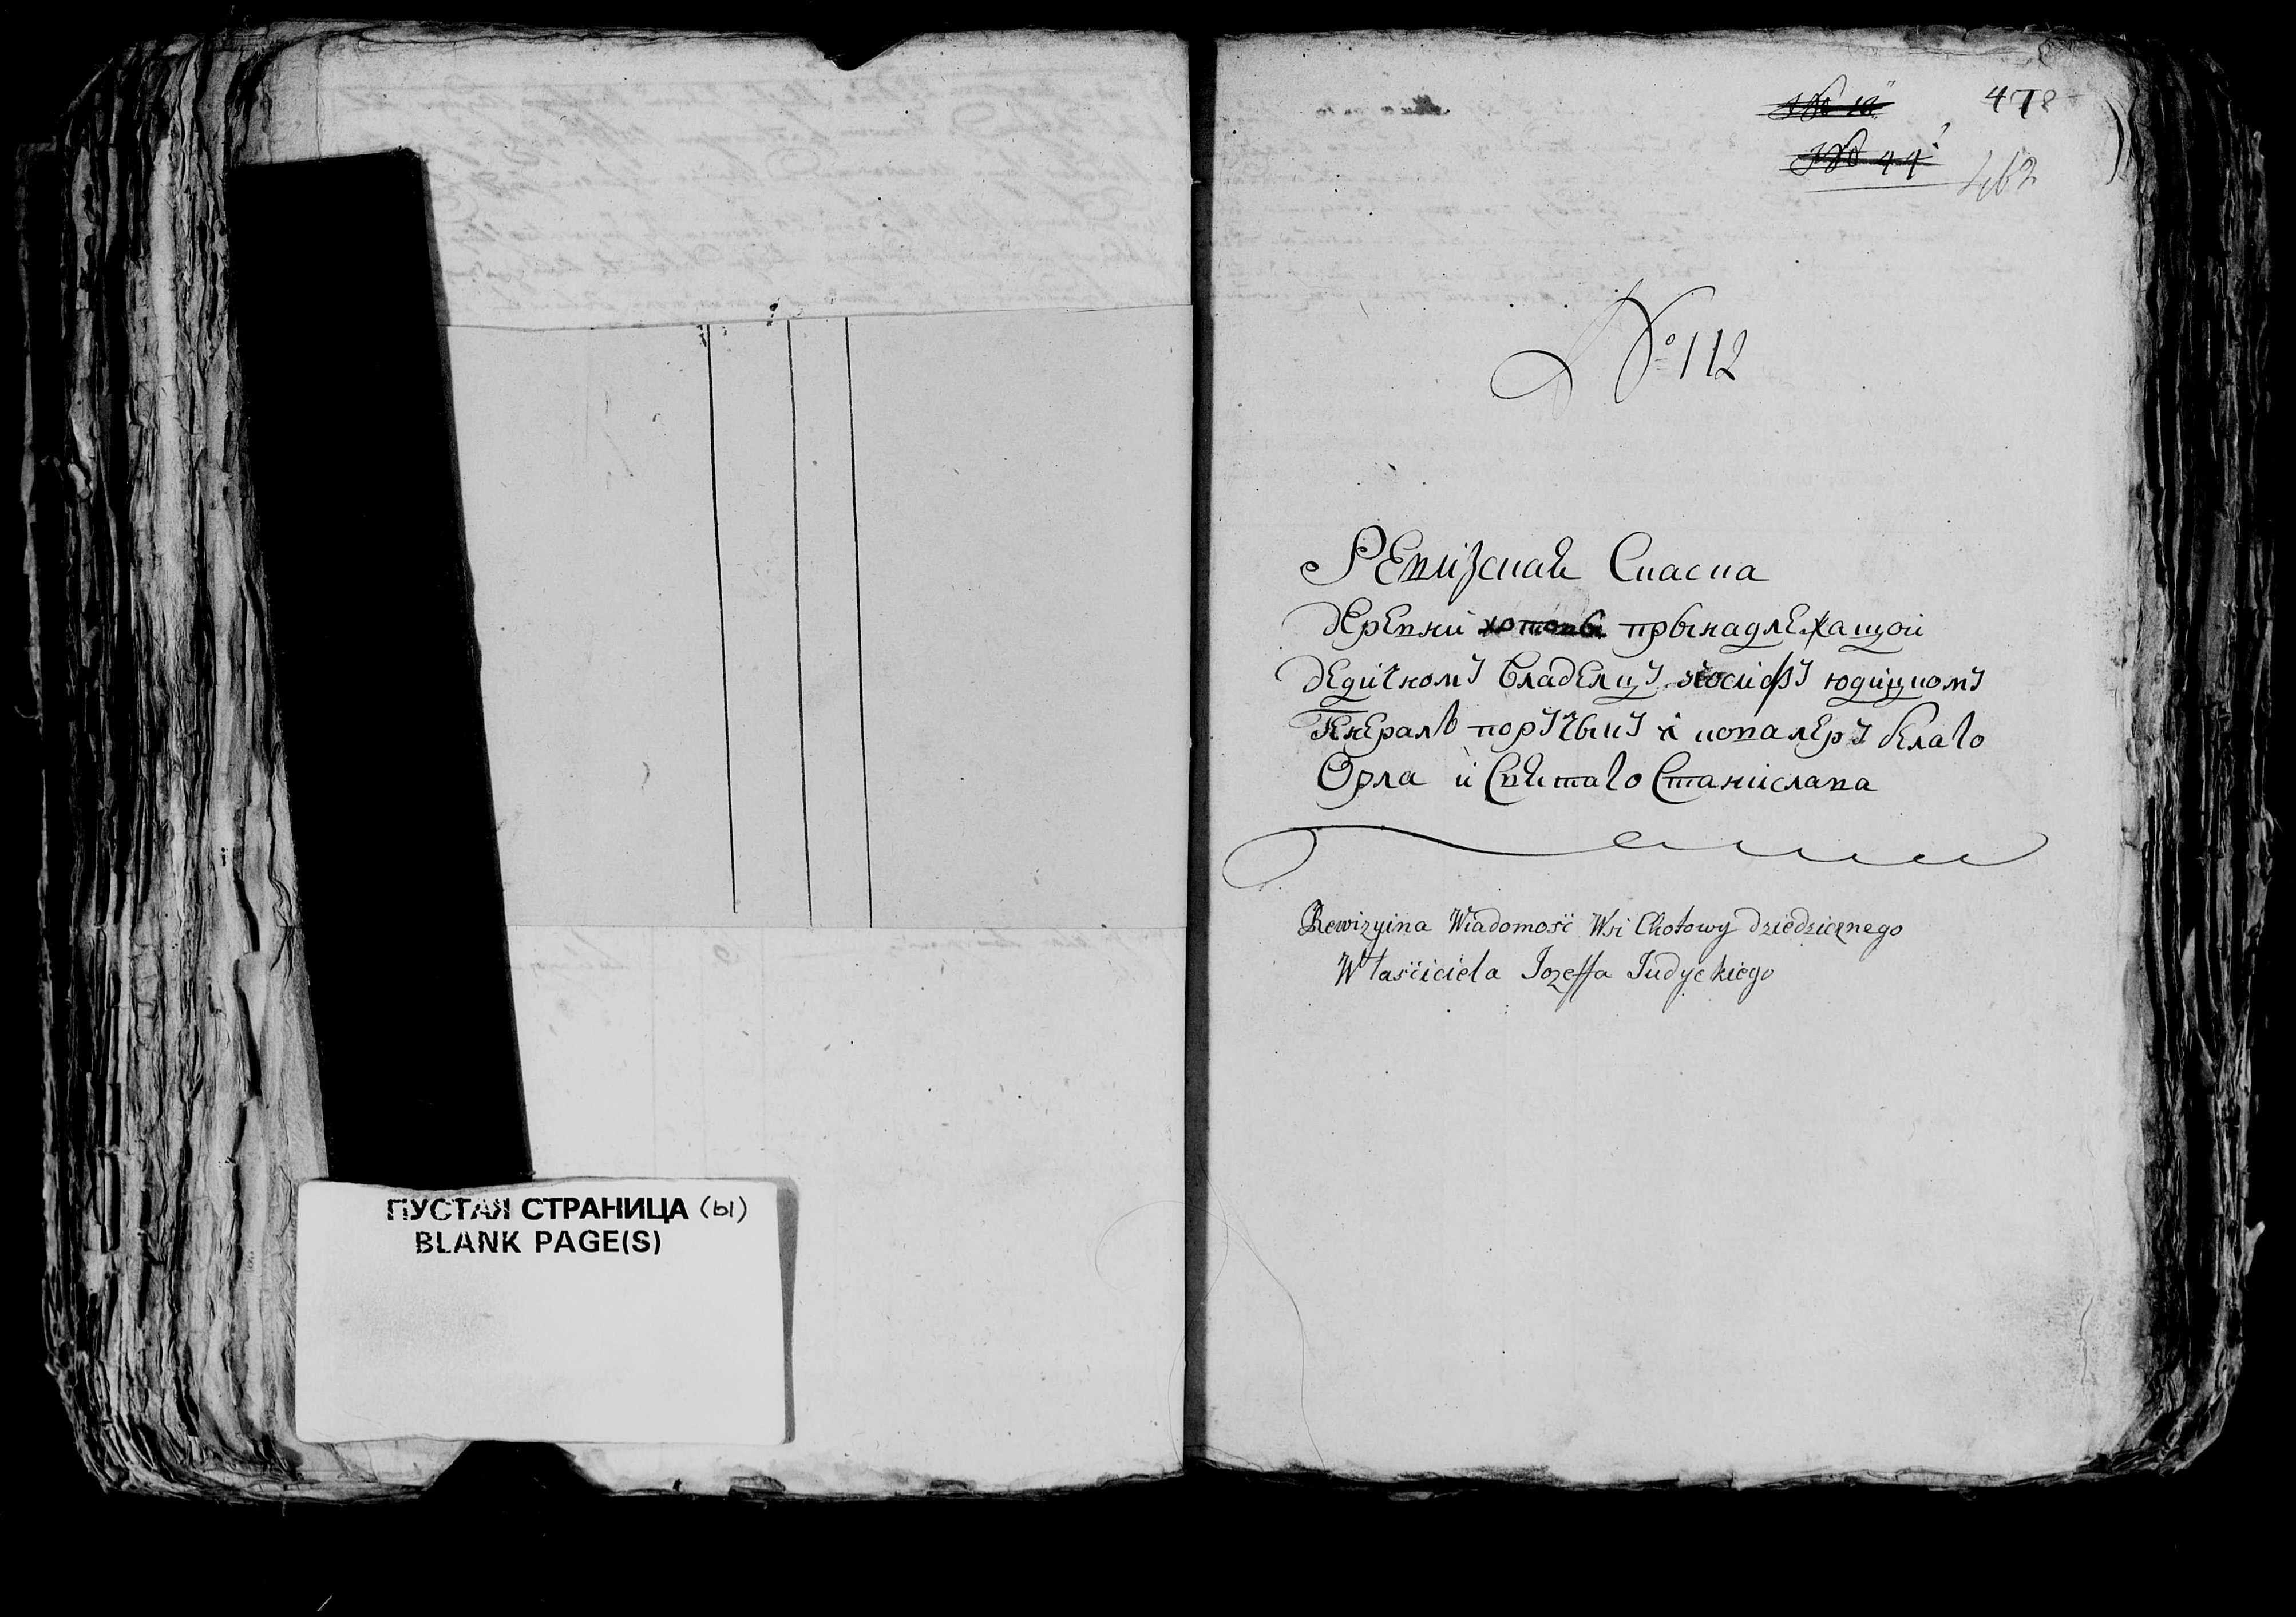 ПУСТАЯ СТРАНИЦА (ы)
BLANK PAGE(S)
№ 18
478
№ 44
462
№ 112
Ревизская Скаска
деревни хотовы прынадлежащой
Дедичному Владелцу иосифу юдицкому
Генералъ поручыку и кавалеру белаго
Орла и Святаго Станислава
Rewizyina Wiadomość Wsi Chotowy dziedzicznego
Właściciela Jozeffa Judyckiego